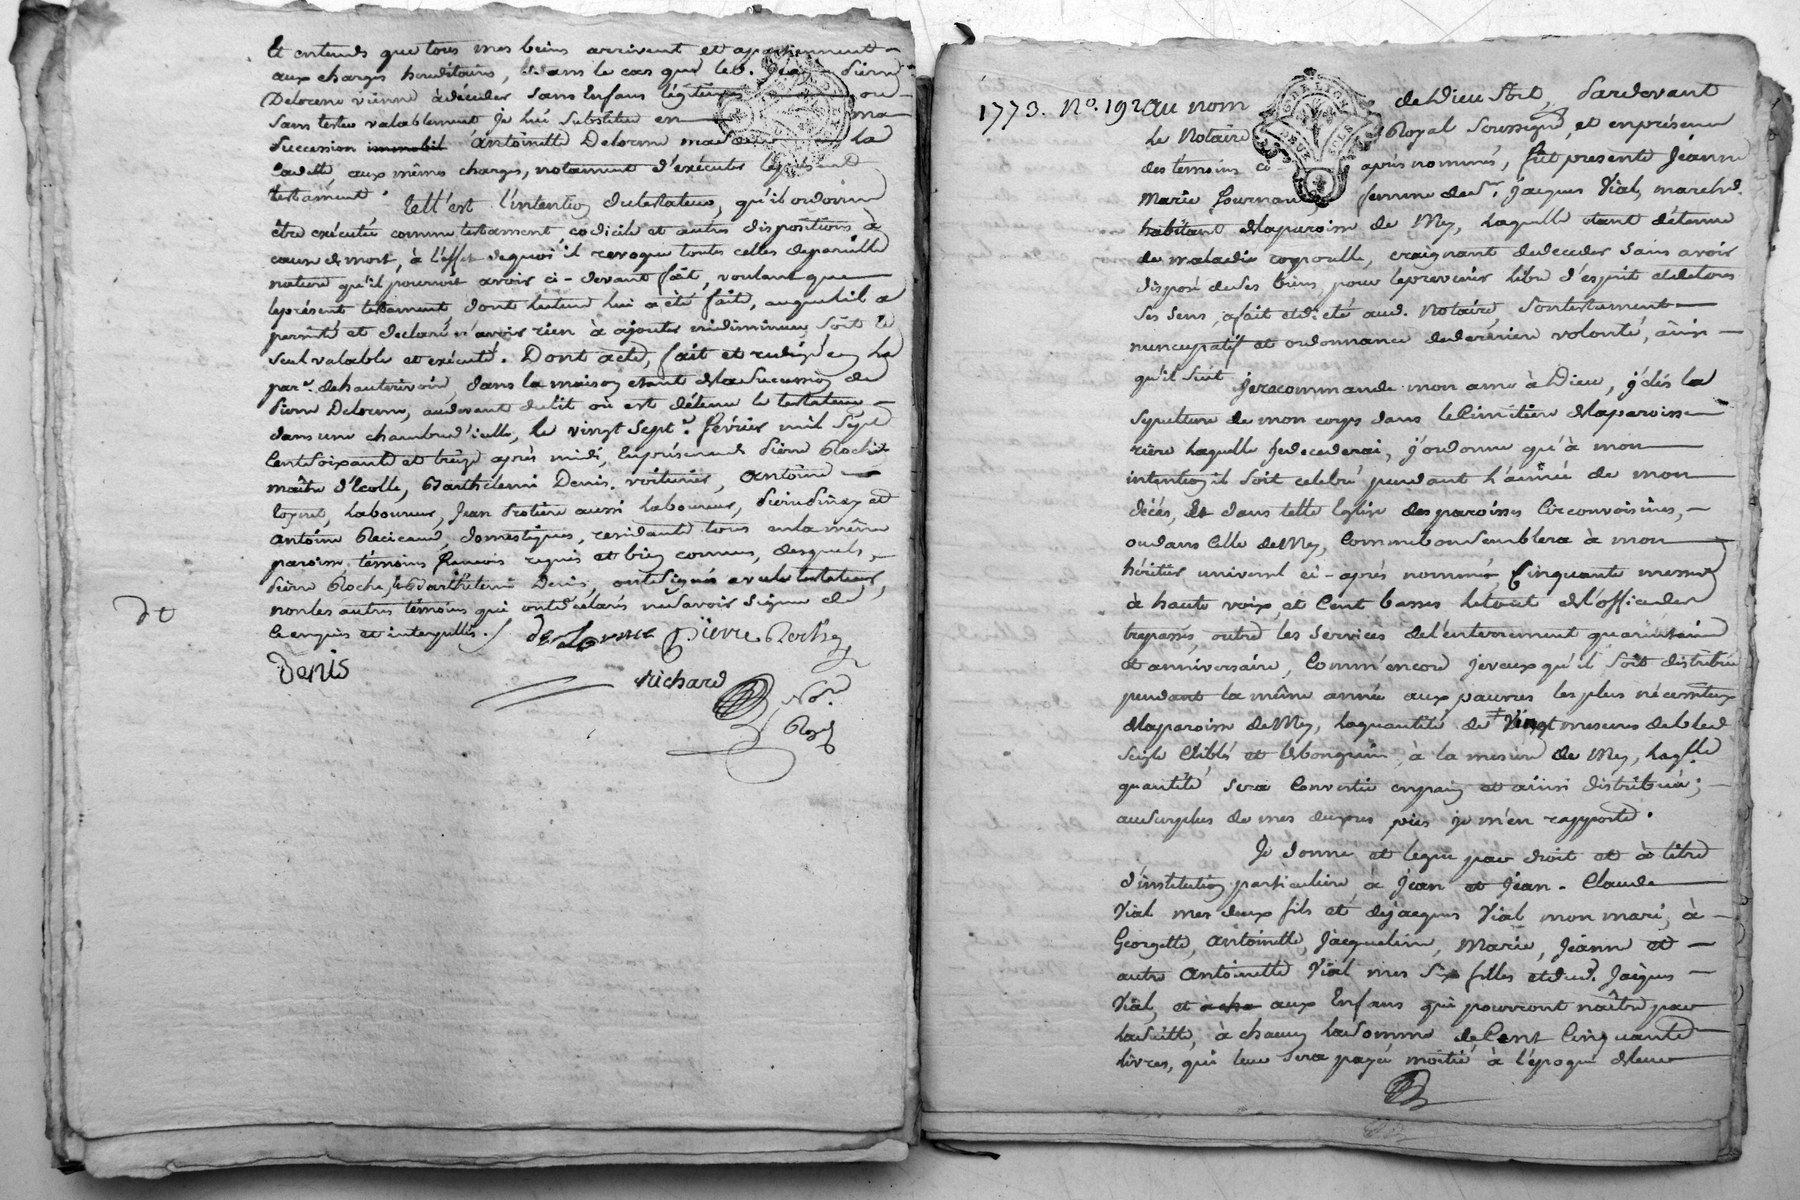 Et entends que tous mes biens arrivent et appartiennent
aux charges héréditaires, et dans le cas que led. Pierre
Delorme vienne à décéder sans Enfans légitimes ou
sans tester valablement je lui substitue en ma
succession Antoinette Delorme la
Cadette, aux mêmes charges, notamment d'exécuter le présent
testament.
Tell'est l'intention du testateur, qu'il ordonne
être exécutée comme testament codicile et autres dispositions à
cause de mort, à l'effet dequoi il revoque toutes celles de pareille
nature qu'il pourroit avoir ci-devant fait, voulant que
le présent testament, dont lecture lui a été faite, auquel il a
persisté et declaré n'avoir rien à ajouter ni diminuer soit le
seul valable et exécuté. Dont acte, fait et redigé en la
par.e dehauterivoire, dans la maison étant de la succession de
Pierre Delorme, audevant du lit où est détenu le testateur
dans une chambre d'icelle, le vingt sept.e février mil sept
Cent soixante et treize après midi, En présence de Pierre Roche
maître d'Ecolle, Barthelemi Denis, voiturier, Antoine
laboureur, Jean aussi laboureur, Pierre et
Antoine domestiques, residants tous en la même
paroisse, témoins requis et bien connus, desquels,
Pierre Roche, et Barthelemi Denis, ont signés avec le testateur,
non les autres témoins qui ont déclarés ne savoir signer de
ce enquis et interpellés./. delorme Pierre Roche
Denis
richard
No.re
Royal
1773. No. 192 Au nom de Dieu soit, Pardevant
Le Notaire Royal soussigné, et en présence
des témoins ci- après nommés, fût presente Jeanne
Marie femme de sr. Jacques Vial, march.d
habitant de la paroisse de Mey, laquelle étant détenue
de maladie corporelle, craignant de deceder sans avoir
disposé de ses biens, pour le prevenir libre d'esprit et de tous
ses sens, a fait et dicté aud. Notaire, son testament
nuncupatif et ordonnance de derniere volonté, ainsi
qu'il suit je recommande mon ame à Dieu, j'élis la
sepulture de mon corps dans le Cimetiere de la paroisse
rière laquelle je decederai, j'ordonne qu'à mon
intention il soit celebré pendant l'année de mon
décès, dans telle Eglise des paroisses Circonvoisines,
ou dans Celle de Mey, Comme bon semblera à mon
héritier universel ci-après nommé, Cinquante messes
à haute voix, et Cent basses le tout de l'office des
trepassés, outre les services de l'enterrement quarantaine
et anniversaire, Comm'encore je veux qu'il soit distribué
pendant la même année aux pauvres les plus nécessiteux
de la paroisse de Mey, la quantité de Vingt mesures de bled
seigle Criblé et de bon grain, à la mesure de Mey, laq.lle
quantité sera Convertie en pain et ainsi distribuée;
au surplus de mes œuvres pies je m'en rapporte.
Je donne et legue par droit et à titre
d'institution particuliere à Jean et Jean-Claude
Vial mes deux fils et de Jacques Vial mon mari, à
Georgette, Antoinette, Jacqueline, Marie, Jeanne et
autre Antoinette Vial mes six filles et dud. Jacques
Vial, et aux Enfans qui pourront naître par
la suitte, à chacun la somme de Cent Cinquante
livres, qui leur sera payée moitié à l'époque de leur